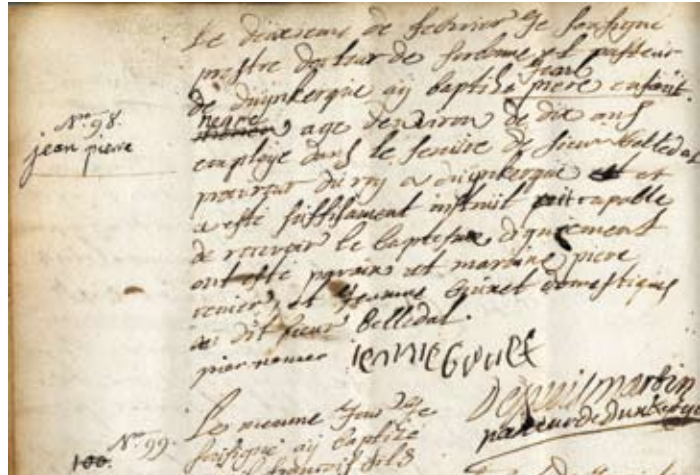 Le dixieme de febvrier Je soufigné
prestre docteur de sorbonne et pasteur
de duynkerque ay baptisé Jean piere enfant
negre
agé denviron de dix ans
employé dans le service de sieur belledal
procureur du roy a duynkerque et
a esté suffisament instruit capable
de recevoir le baptesme dignement
ont esté parain et maraine piere
renier et Jenne Guuet domestiques
du dit sieur Belledal.
pier renier ienne Gouet
martin
pasteur de dunkerque
No. 98.
jean pierre
Le mesme Jour Je
soufigné ay baptizé
françois fils
No 99.
100.